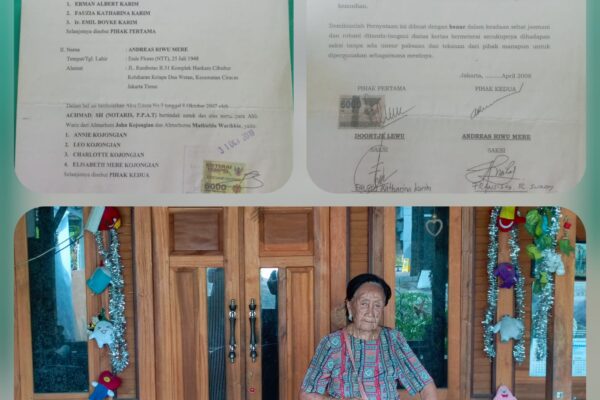 1. ERMAN ALBERT KARIM
2. FAUZIA KATHARINA KARIM
3. Ir. EMIL BOYKE KARIM
Selanjutnya disebut PIHAK PERTAMA
II. Nama : ANDREAS RIWU MERE
Tempat/Tgl. Lahir : Ende Flores (NTT), 25 Juli 1948
Alamat : Jl. Rambutan R.51 Komplek Hankam Cibubur
Kelurahan Kelapa Dua Wetan, Kecamatan Ciracas
Jakarta Timur
Dalam hal ini berdasarkan Akta Kuasa No.5 tanggal 9 Oktober 2007 oleh
ACHMAD, SH (NOTARIS, P.P.A.T) bertindak untuk dan atas nama para Ahli
Waris dari Almarhum John Kojongian dan Almarhumah
1. ANNIE KOJONGIAN
2. LEO KOJONGIAN
3. CHARLOTTE KOJONGIAN
4. ELISABETH MERE KOJONGIAN
Selanjutnya disebut PIHAK KEDUA
6000
kemudian.
Demikianlah Pernyataan ini dibuat dengan benar dalam keadaan sehat jasmani
dan rohani ditanda-tangani diatas kertas bermeterai secukupnya dihadapan
saksi tanpa ada unsur paksaan dan tekanan dari pihak manapun untuk
dipergunakan sebagaimana mestinya.
Jakarta, April 2008
PIHAK PERTAMA
PIHAK KEDUA
6000
DOORTJE LEWU
ANDREAS RIWU MERE
SAKSI
SAKSI
Katharina Karim